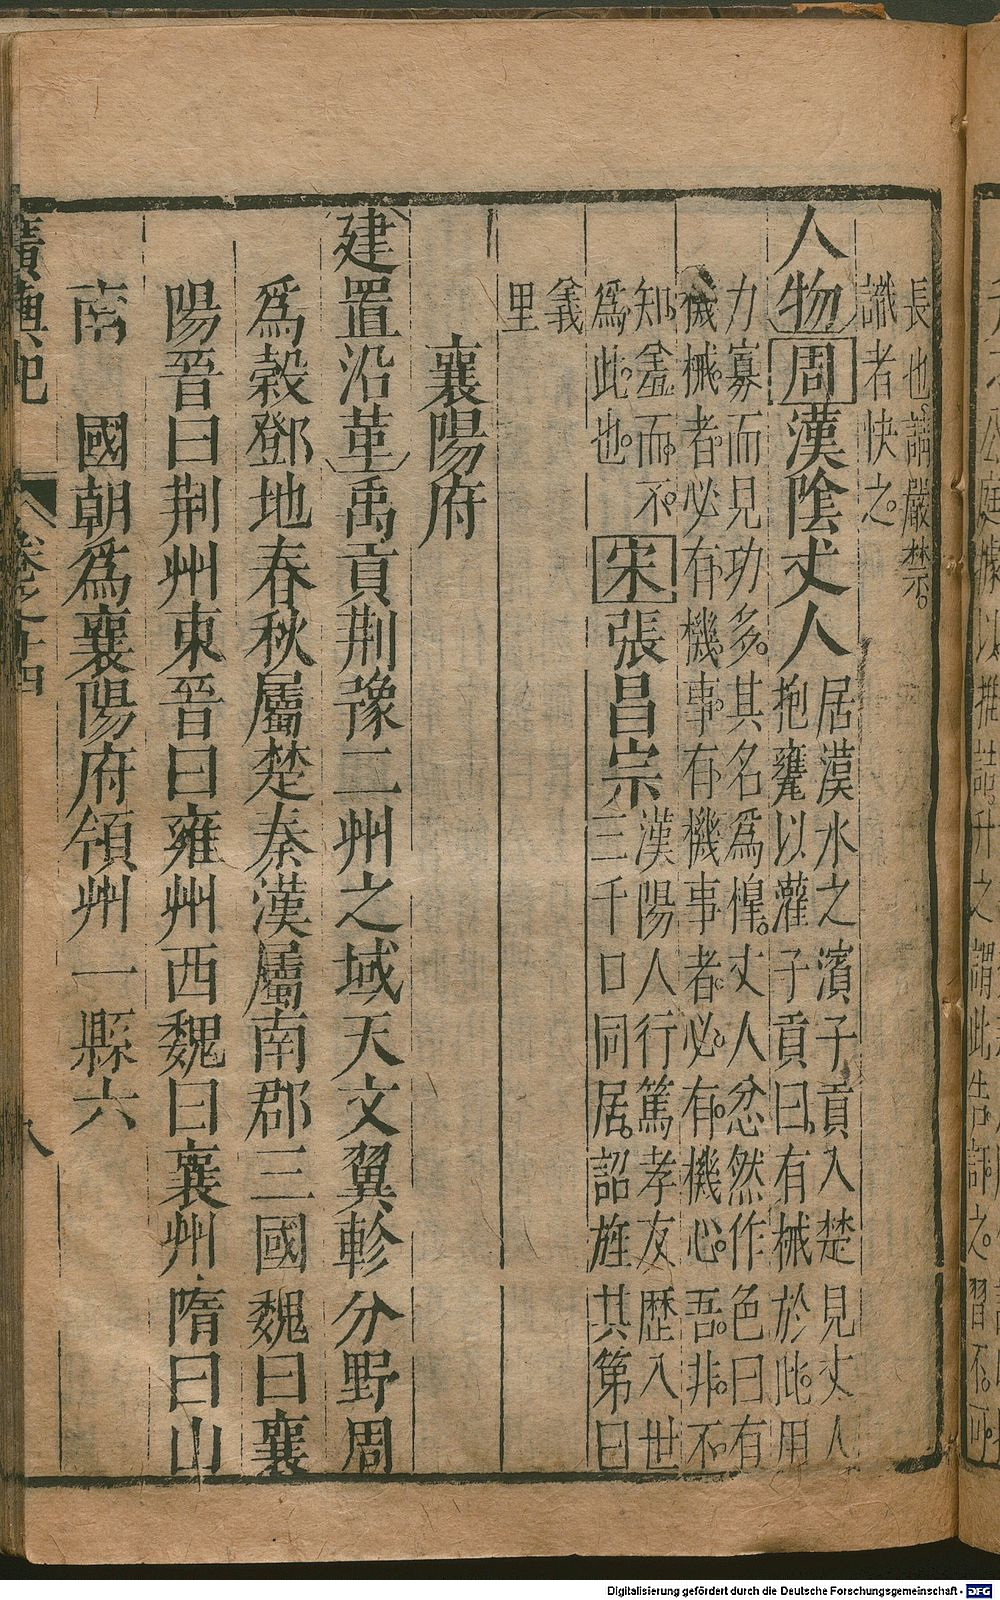 長也請嚴禁
識者快之
人物周漢陰丈人
居漢水之濱子貢入楚見丈人
抱甕以灌子貢曰有械於此用
力寡而見功多其名為槔丈人忿然作色曰有
機械者必有機事有機事者必有機心吾非不
知羞而不
為此也
宋張昌宗
漢陽人行篤孝友歷八世
三千口同居詔旌其第曰
義
里
襄陽府
建置沿革禹貢荆豫二州之域天文翼軫分野周
為榖鄧地春秋屬楚秦漢屬南郡三國魏曰襄
陽晉曰荆州東晉曰雍州西魏曰襄州隋曰山
南 國朝為襄陽府領州一縣六
廣輿記
卷之十四
八
Digitalisierung gefördert durch die Deutsche Forschungsgemeinschaft - DFG